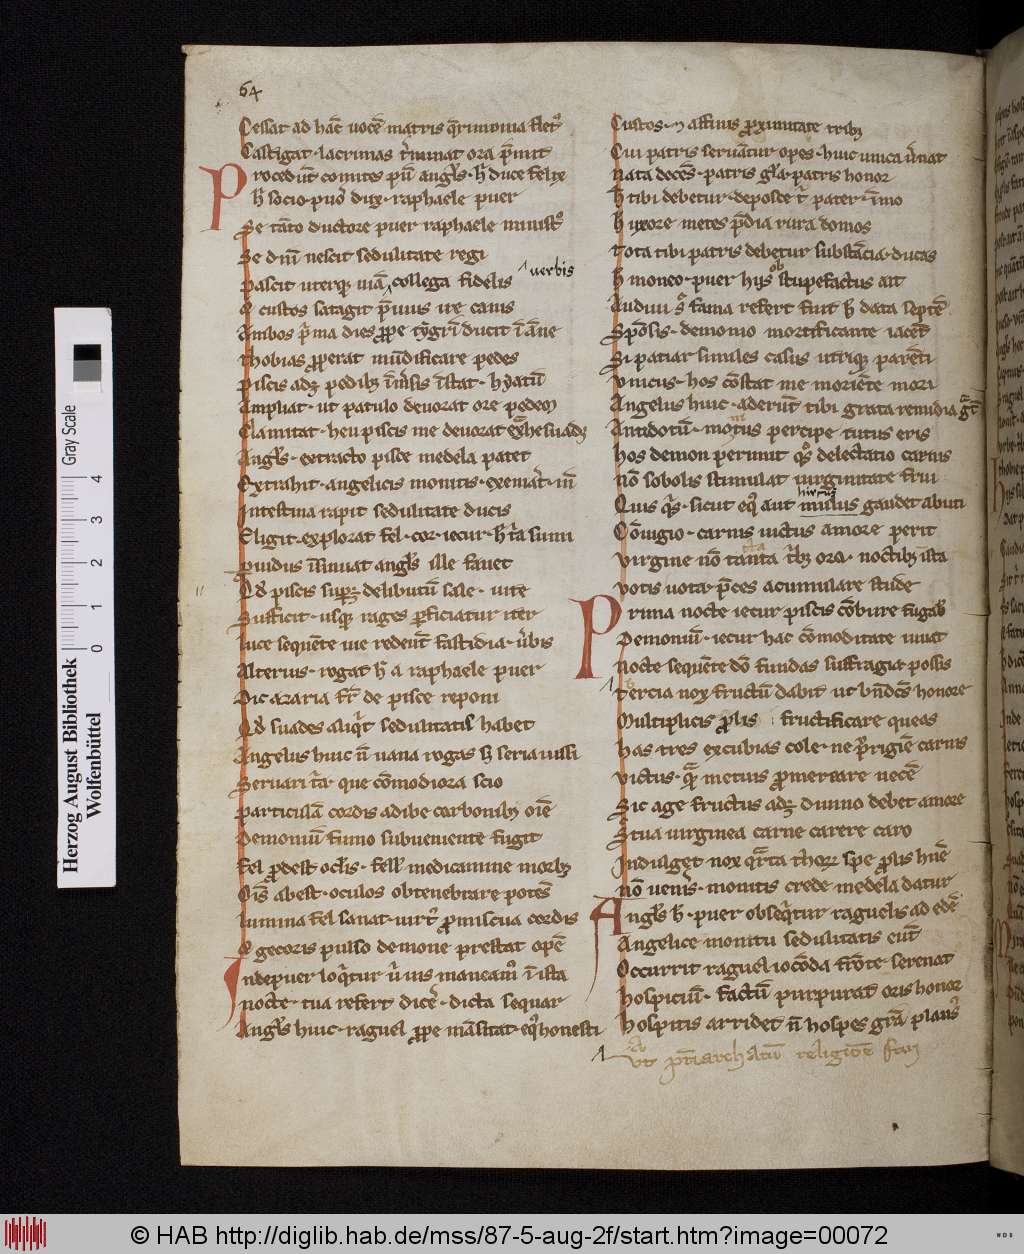 64
Cessat ad hāc uocē matris q̄rimonia flet᷒
Castigat · lacrimas t̄minat ora p̄mit
Procedūt comites pū angl̄s · h̄ duce felix
h̄ socio · puo᷒ dux · raphaele puer
Se tāto ductore puer raphaele minist᷒o
Se dn̄i nescit sedulitate regi
pascit uterq; uiā collega fidelis
uerbis
& custos satagit p̄uius ire canis
Ambos p̄ma dies ꝓpe tẏgrī ducit ī āne
thobias ꝓperat mūdificare pedes
piscis adē pedib; īm̄sis īstat · hẏatū
Ampliat · ut patulo deuorat ore pedem
Clamitat · heu piscis me deuorat
Angl̄s · extracto pisce medela patet
Extrahit · angelicis monitis · exemat᷒ · in̄
Intestina rapit sedulitate ducis
Eligit · explorat fel · cor · iecur · h̄ t̄a sumi
puidus īsinuat angl̄s ille fauet
Qd piscis sup̄ē delibutū sale · uite
Sufficit · usq; rages p̄ficiatur iter
luce sequēte uie redeūt fastidia · ūbis
Alterius · rogat h̄ a raphaele puer
Dic azaria fr̄ de pisce reponi
Qd suades aliq̄t sedulitatis habet
Angelus huic n̄ uana rogas s; seria iussi
Seruari t̄a · que cōmodiora scio
particulā cordis adibe carbonib; oīē
Demoniū fumo subueniente fugit
fel ꝓdest oclis · fell᷒ medicamine morb;
Oīs abest · oculos obtenebrare potēs
lumina fel sanat · uirt᷒ ꝓmiscua cordis
& gecoris pulso demone prestat opē
Inde puer loq̄tur ū ius maneam᷒ ī ista
nocte · tua refert dicē᷒ · dicta sequar
Angl̄s huic · raguel ꝓpe māsitat · eq᷒ honesti
Custos · ⁊ affinis ꝓximitate trib;
Cui patris seruātur opes · huic unica ūnat
Nata decēs · patris gl̄a · patris honor
h̄ tibi debetur · deposce t̄ pater · īmo
h̄ uxore metes p̄dia rura domos
tota tibi patris debetur substācia · ducas
h̄ moneo · puer hijs ob stupefactus ait
Audiui s᷒ fama refert fuit h̄ data septē
Spōsis · demonio mortificante iacēt
Si patiar similes casus utriq; parēti
Vnicus · hos cōstat me moriēte mori
Angelus huic · aderūt tibi grata remidia
Antidotū · motus percipe tutus eris
hos demon perimit q᷒s delectatio carnis
nō sobolis stimulat uirginitate frui
hircus
Quis q᷒s · sicut eq᷒ aut mulus gaudet abuti
Cōiugio · carnis uictus amore perit
Virgine nō tanta t̄b; ora · noctib; ista
Votis uota p̄ces acumulare stude
Prima nocte iecur piscis cōbure fugab᷒
Demoniū · iecur hac cōmoditate iuuat
Nocte sequēte dō fundas suffragia possis
tercia nox fructū dabit ut bn̄dcs honore
Multiplicis ꝓlis fructificare queas
has tres excubias cole · ne p̄rigiē carnis
Victus · q᷒ metuis ꝓmereare necē
Sic age fructus adē diuino debet amore
Stua uirginea carne carere caro
Indulget nox q᷒rta thorꝝ spe ꝓlis hn̄ē
nō uenis᷒ · monitis crede medela datur
Angl̄s h̄ · puer obseq̄tur raguelis ad edē
Angelice monitu sedulitatis eūt
Occurrit raguel iocōda frōte serenat
hospiciū · factū purpurat oris honor
hospitis arridet n̄ hospes gr̄a plaus᷒
Vt pr̄iarchatū religiōē
Gray Scale
0 1 2 3 4
Herzog August Bibliothek
Wolfenbüttel
© HAB http://diglib.hab.de/mss/87-5-aug-2f/start.htm?image=00072